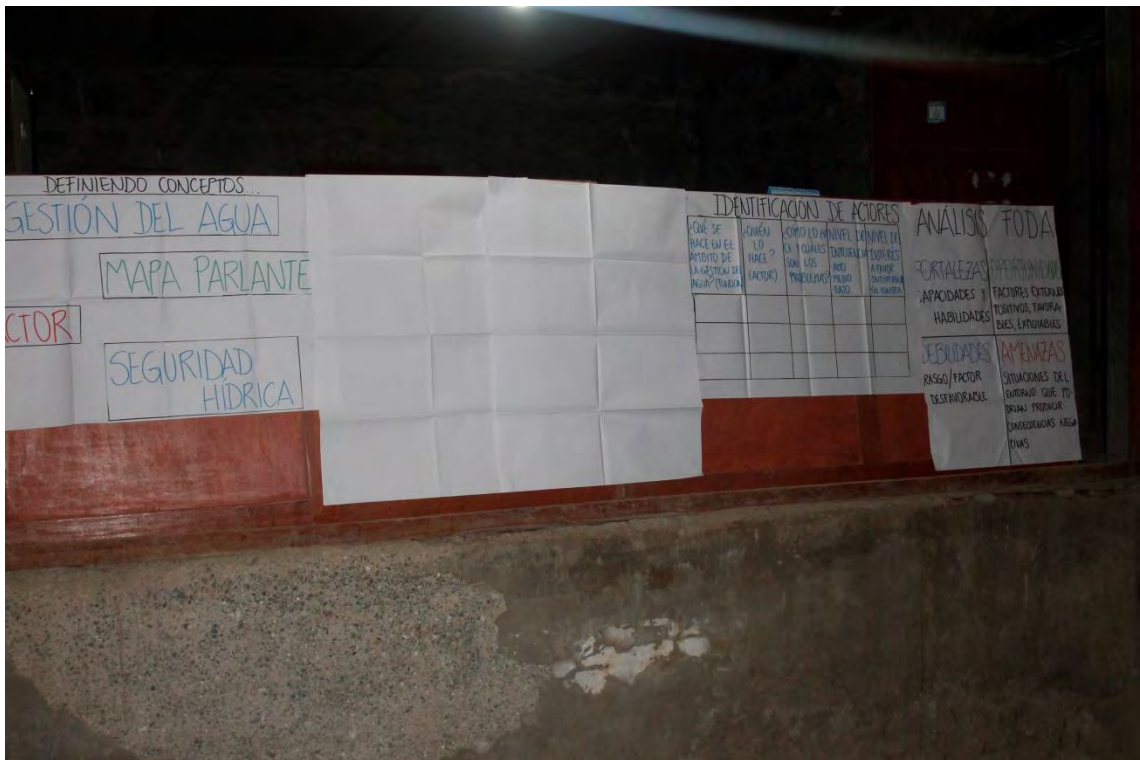 DEFINIENDO CONCEPTOS...
GESTIÓN DEL AGUA
MAPA PARLANTE
CTOR
SEGURIDAD
HÍDRICA
IDENTIFICACIÓN DE ACTORES
¿QUÉ SE
HACE EN EL
ÁMBITO DE
LA GESTIÓN DEL
AGUA?
¿QUIÉN
LO
HACE?
(ACTOR)
¿CÓMO LO HA
CE Y CUÁLES
SON LOS
PROBLEMAS?
NIVEL DE
INFLUENCIA
ALTO
MEDIO
BAJO
NIVEL DE
INTERÉS
A FAVOR
INDIFERENTE
EN CONTRA
ANÁLISIS FODA
FORTALEZAS
CAPACIDADES Y
HABILIDADES
OPORTUNIDAD
FACTORES EXTERNO
POSITIVOS, FAVORA-
BLES, EXPLOTABLES
DEBILIDADES
RASGO/FACTOR
DESFAVORABLE
AMENAZAS
SITUACIONES DEL
ENTORNO QUE PO-
DRIAN PRODUCIR
CONSECUENCIAS NEGA
TIVAS